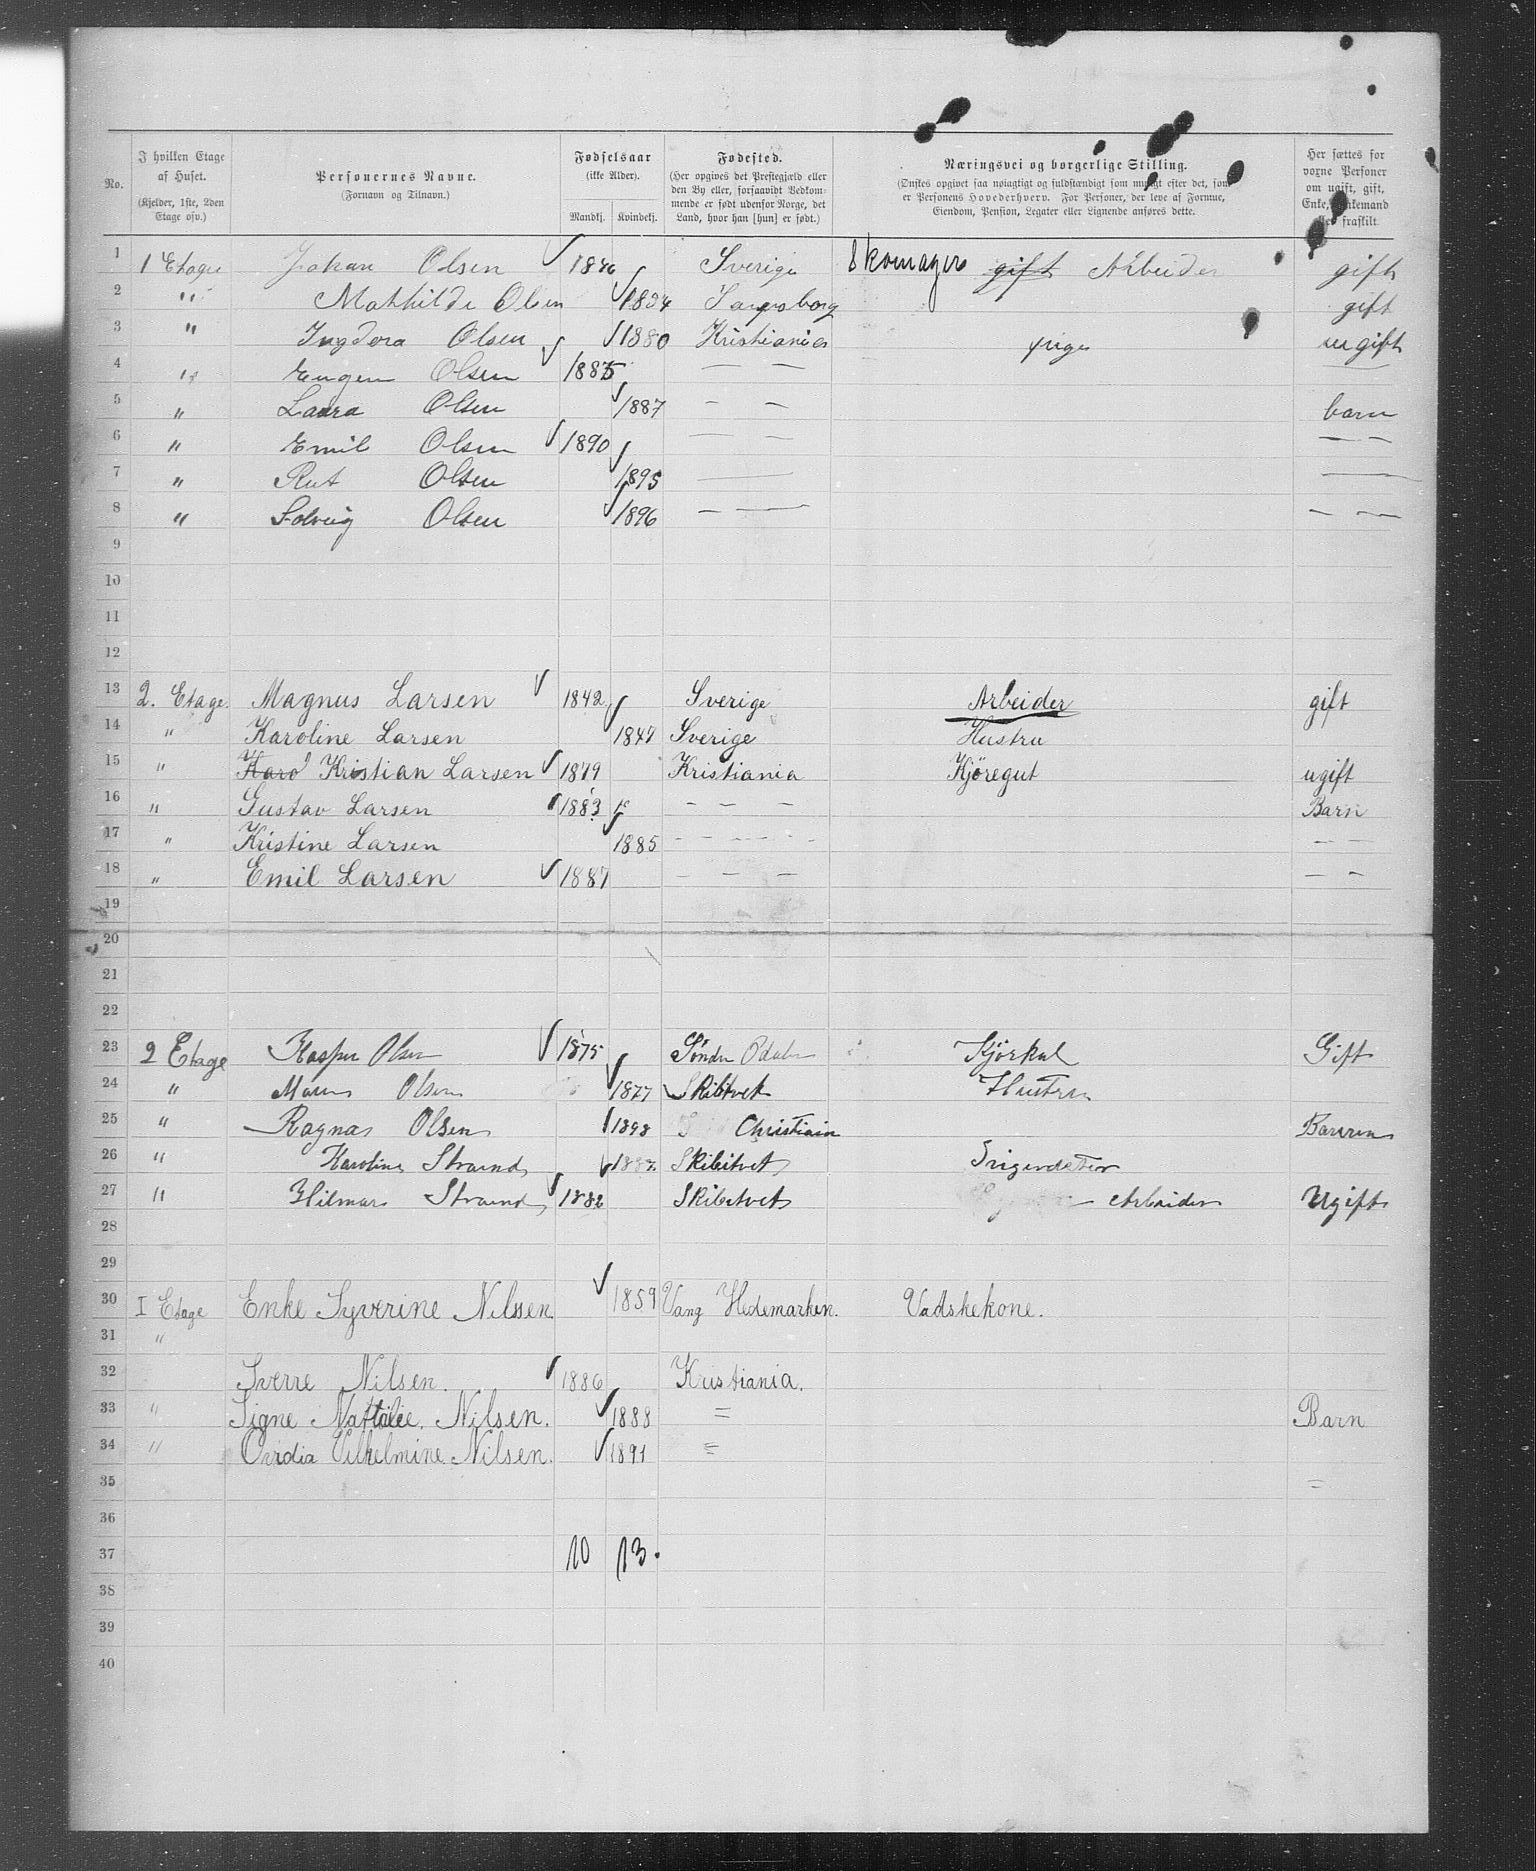 No.
I hvilken Etage af Huset. (Kjelder, 1ste, 2den Etage osv.)
Personernes Navne. (Fornavn og Tilnavn.)
Fødselsaar (ikke Alder). Mandkj. Kvindekj.
Fødested. (Her opgives det Prestegjæld eller den By eller, forsaavidt Vedkommende er født udenfor Norge, det Land, hvor han [hun] er født.)
Næringsvei og borgerlige Stilling. (Ønskes opgivet saa nøiagtigt og fuldstændigt som muligt efter det, som er Personens Hovederhverv. For Personer, der leve af Formue, Eiendom, Pension, Legater eller Lignende anføres dette.
Her sættes for voxne Personer om ugift, gift, Enke, Enkemand eller fraskilt.
1 1 Etage Johan Olsen 1846 Sverige Skomager gift Arbeider gift
2 " Mathilde Olsen 1854 Sarpsborg gift
3 " Ingdora Olsen 1880 Kristiania pige ugift
4 " Eugen Olsen 1885 — — —
5 " Laura Olsen 1887 — — barn
6 " Emil Olsen 1890 — — — —
7 " Rut Olsen 1895 — —
8 " Solveig Olsen 1896 — — — —
9
10
11
12
13 2. Etage. Magnus Larsen 1842 Sverige Arbeider gift
14 " Karoline Larsen 1847 Sverige Hustru
15 " Karo Kristian Larsen 1879 Kristiania Kjöregut ugift
16 " Gustav Larsen 1883 — — — Barn
17 " Kristine Larsen 1885 — — — — —
18 " Emil Larsen 1887 — — — — —
19
20
21
22
23 2 Etage Kasper Olsen 1875 Søndre Odalen Kjörkal Gift
24 " Maren Olsen 1877 Skibtvet Hustru
25 " Ragna Olsen 1898 Christiania Barn
26 " Karoline Strand Skibitvet
27 " Hilmar Strand 1882 Skibitvet Arbeider Ugift
28
29
30 I Etage Enke Syverine Nilssen. 1859 Vang Hedemarken. Vadskekone.
31 "
32 Sverre Nilsen. 1886 Kristiania.
33 " Signe Nattalie. Nilsen. 1888 = Barn
34 " Ovidia Vilhelmine Nilsen. 1891 =
35 =
36
37 10 13.
38
39
40